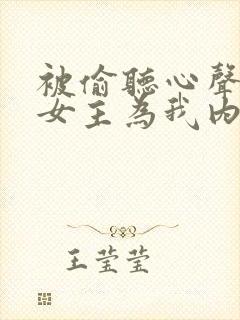 被偷聽心聲
女主為我內
王莹莹